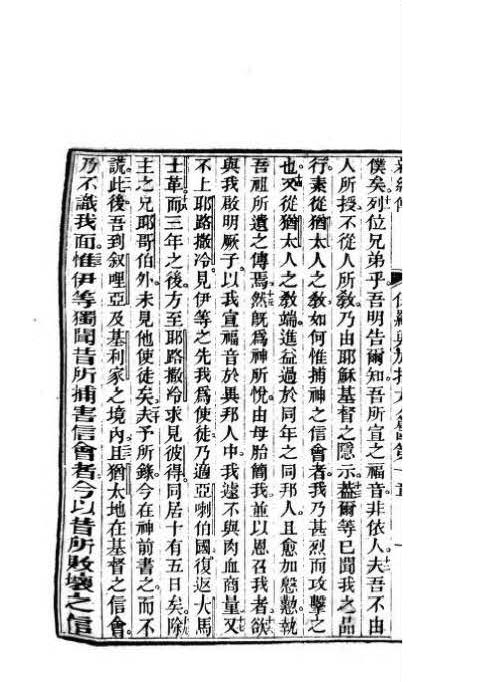 僕矣列位兄弟乎吾明告爾知吾所宣之福音非依人夫吾不由
人所授不從人所敎乃由耶穌基督之隱示蓋爾等已聞我之品
行素從猶太人之敎如何惟捕神之信會者我乃甚烈而攻擊之
也又從猶太人之敎端進益過於同年之同邦人且愈加慇懃執
吾祖所遺之傳焉然旣爲神所悅由母胎簡我並以恩召我者欲
與我啟明厥子以我宣福音於異邦人中我遠不與肉血商量又
不上耶路撒冷見伊等之先我爲使徒乃適亞喇伯國復返大馬
士革而三年之後方至耶路撒冷求見彼得同居十有五日矣除
主之兄耶哥伯外未見他使徒矣夫予所錄今在神前書之而不
謊此後吾到叙哩亞及基利家之境內且猶太地在基督之信會
乃不識我面惟伊等獨聞昔所捕害信會者今以昔所敗壞之信